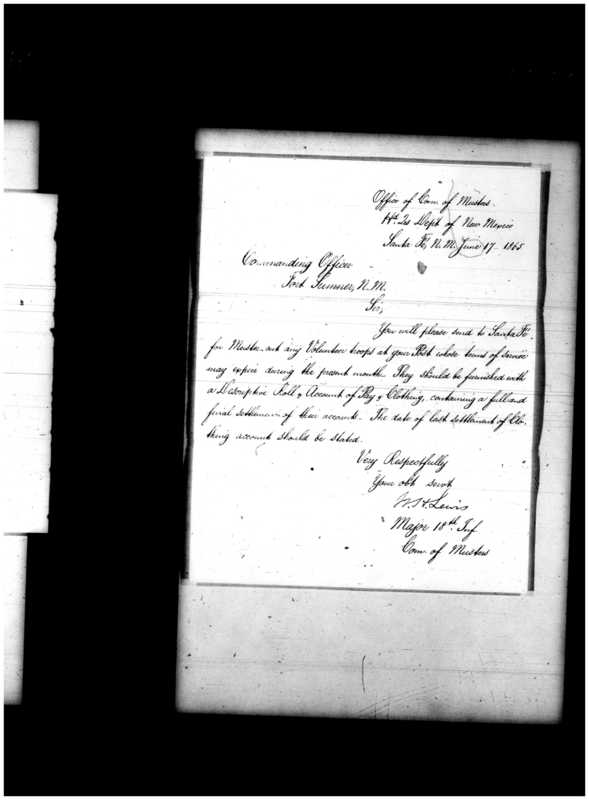 Office of Com. of Musters.
Hd. Qs Dept of New Mexico
Santa Fe, N.M. June 17. 1865
Commanding Officer
Fort Sumner, N.M.
Sir,
You will please send to Santa Fe
for Muster-out any Volunteer troops at your Post whose terms of service
may expire during the present month. They should be furnished with
a Descriptive Roll & Account of Pay & Clothing, containing a full and
final settlement of their account. The date of last settlement of Clo-
thing account should be stated.
Very Respectfully
Your obt servt
W. H. Lewis
Major 18th. Inf
Com. of Musters